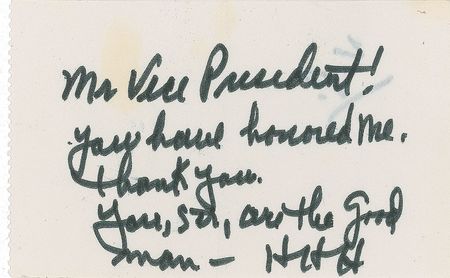 Mr Vice President!
You have honored me.
Thank you.
You, sir, are the Good
man — HHH